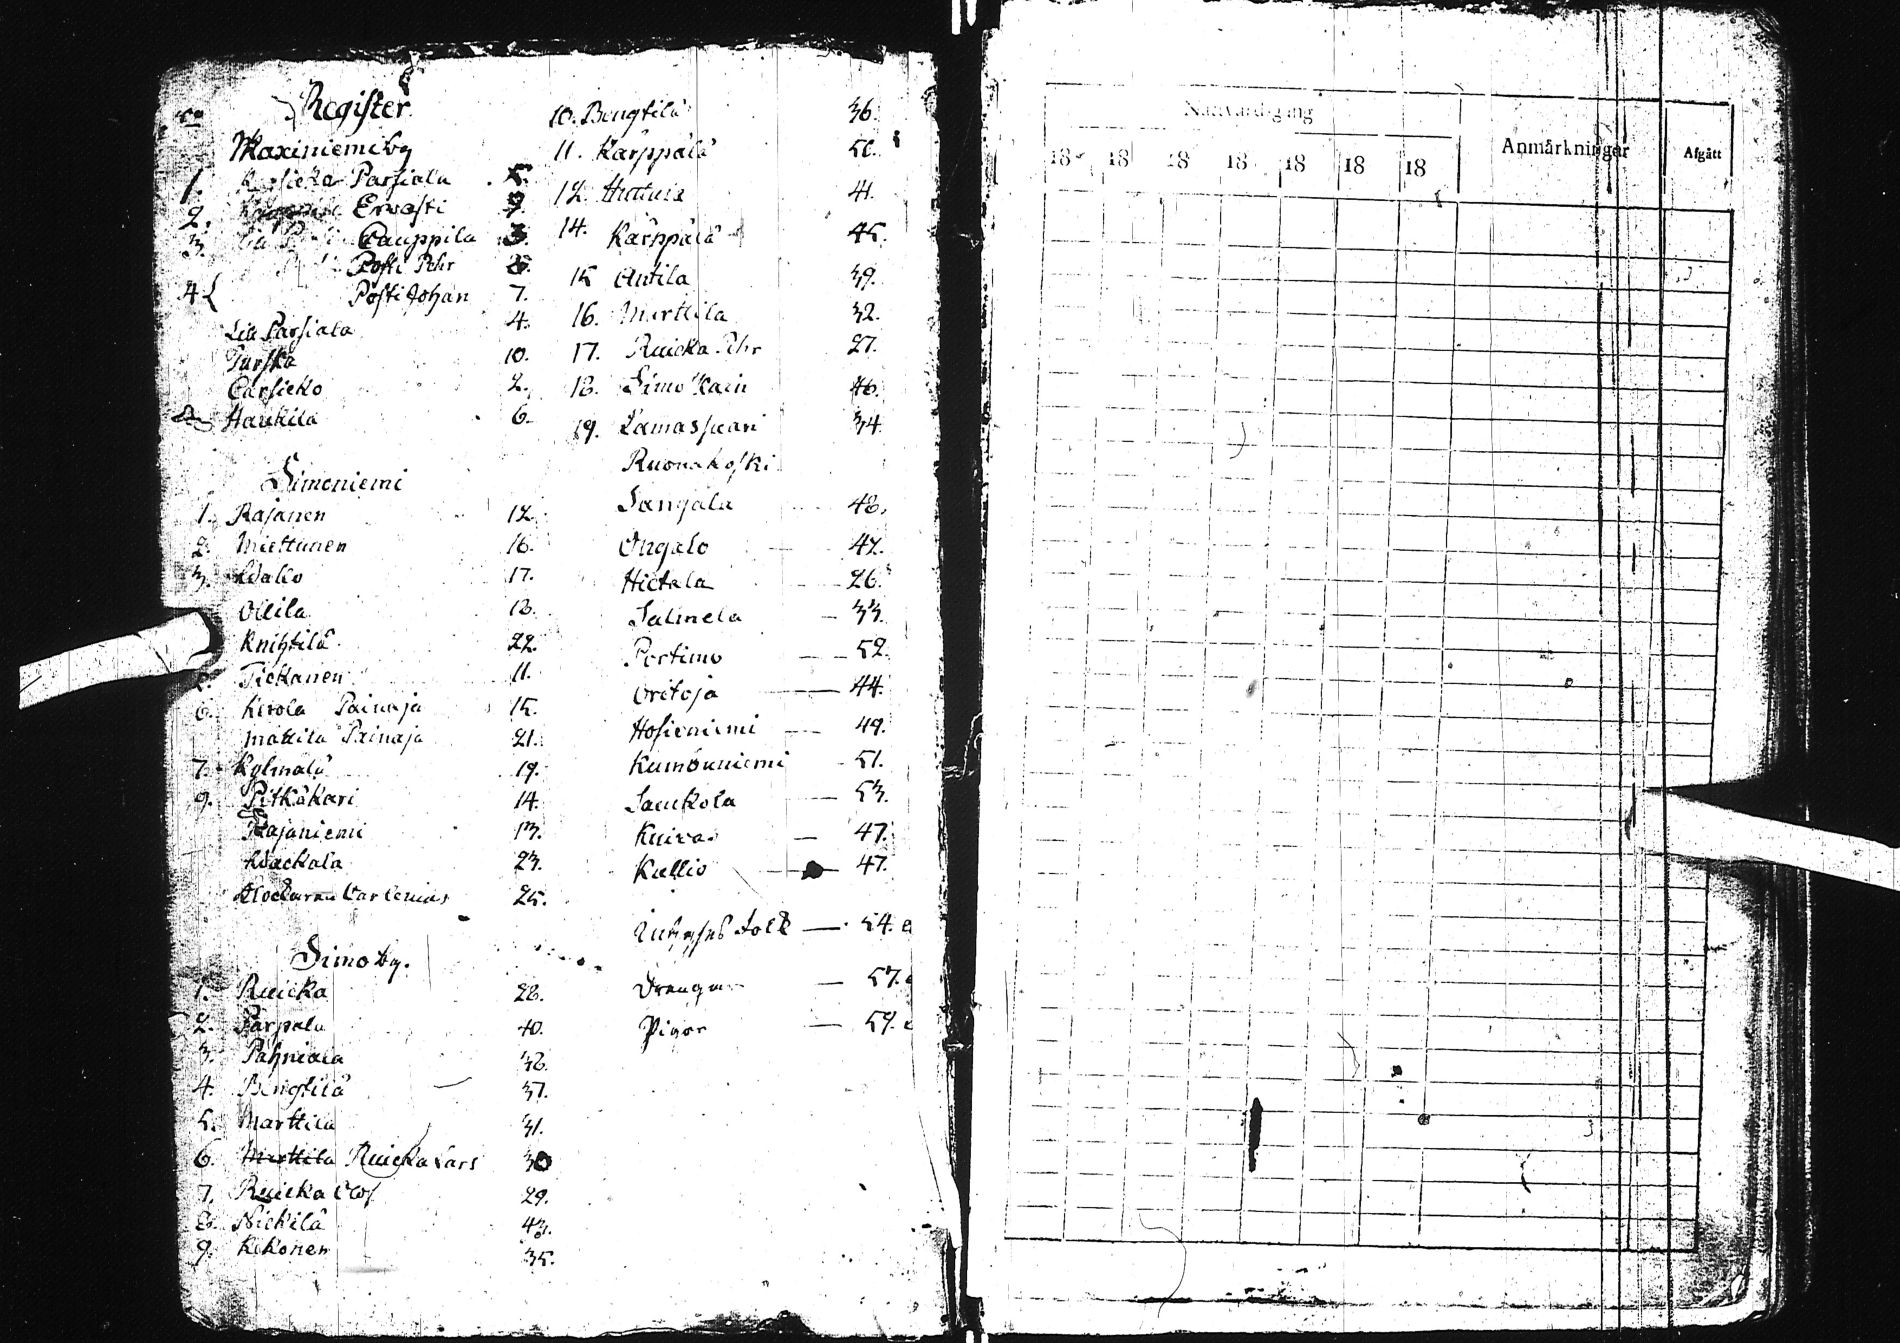 No
Register
Maxiniemi by
1. Karsicko Parsiala 5.
2. Ervasti 9.
3. Lill Cauppila 3.
Posti Pehr 8.
4 { Posti Johan 7.
Lill Parsiala 4.
Turska 10.
Carsicko 2.
Haukila 6.
Simoniemi
1. Rajanen 12.
2. Miettunen 16.
3. Wallo 17.
Ollila 18.
Knihtilä 22.
Tickanen 11.
6. Kerola Painaja 15.
Mattila Painaja 21.
7. Kylmälä 19.
9. Pitkäkari 14.
Rajaniemi 13.
Wackala 23.
Klockaren Carlenius 25.
Simo by.
1. Ruicka 28.
2. Parpala 40.
3. Pahniala 38.
4. Bengtilä 37.
5. Marttila 31.
6. Marttila Ruicka Lars 30
7. Ruicka Olof 29.
8. Nickilä 43.
9. Kikonen 35.
10. Bengtilä 36.
11. Kärppälä 50.
12. Hattula 41.
14. Kärppälä 45.
15 Antila 39.
16. Marttila 32.
17. Ruicka Pehr 27.
18. Simo Karin 46.
19. Lamaspuari 34
Ruonakoski
Sangala 48.
Ongalo 42.
Hietala 26.
Salmela 33.
Portimo 52.
Oritoja 44.
Hosioniemi 49.
Kumôuniemi 51.
Saukola 53.
Kuivas 47.
Kallio 47.
Inhyses Folk 54.
Drengar 57.
Pigor 59.
Nattvardsgång
18 18 18 18 18 18 18
Anmärkningar
Afgått